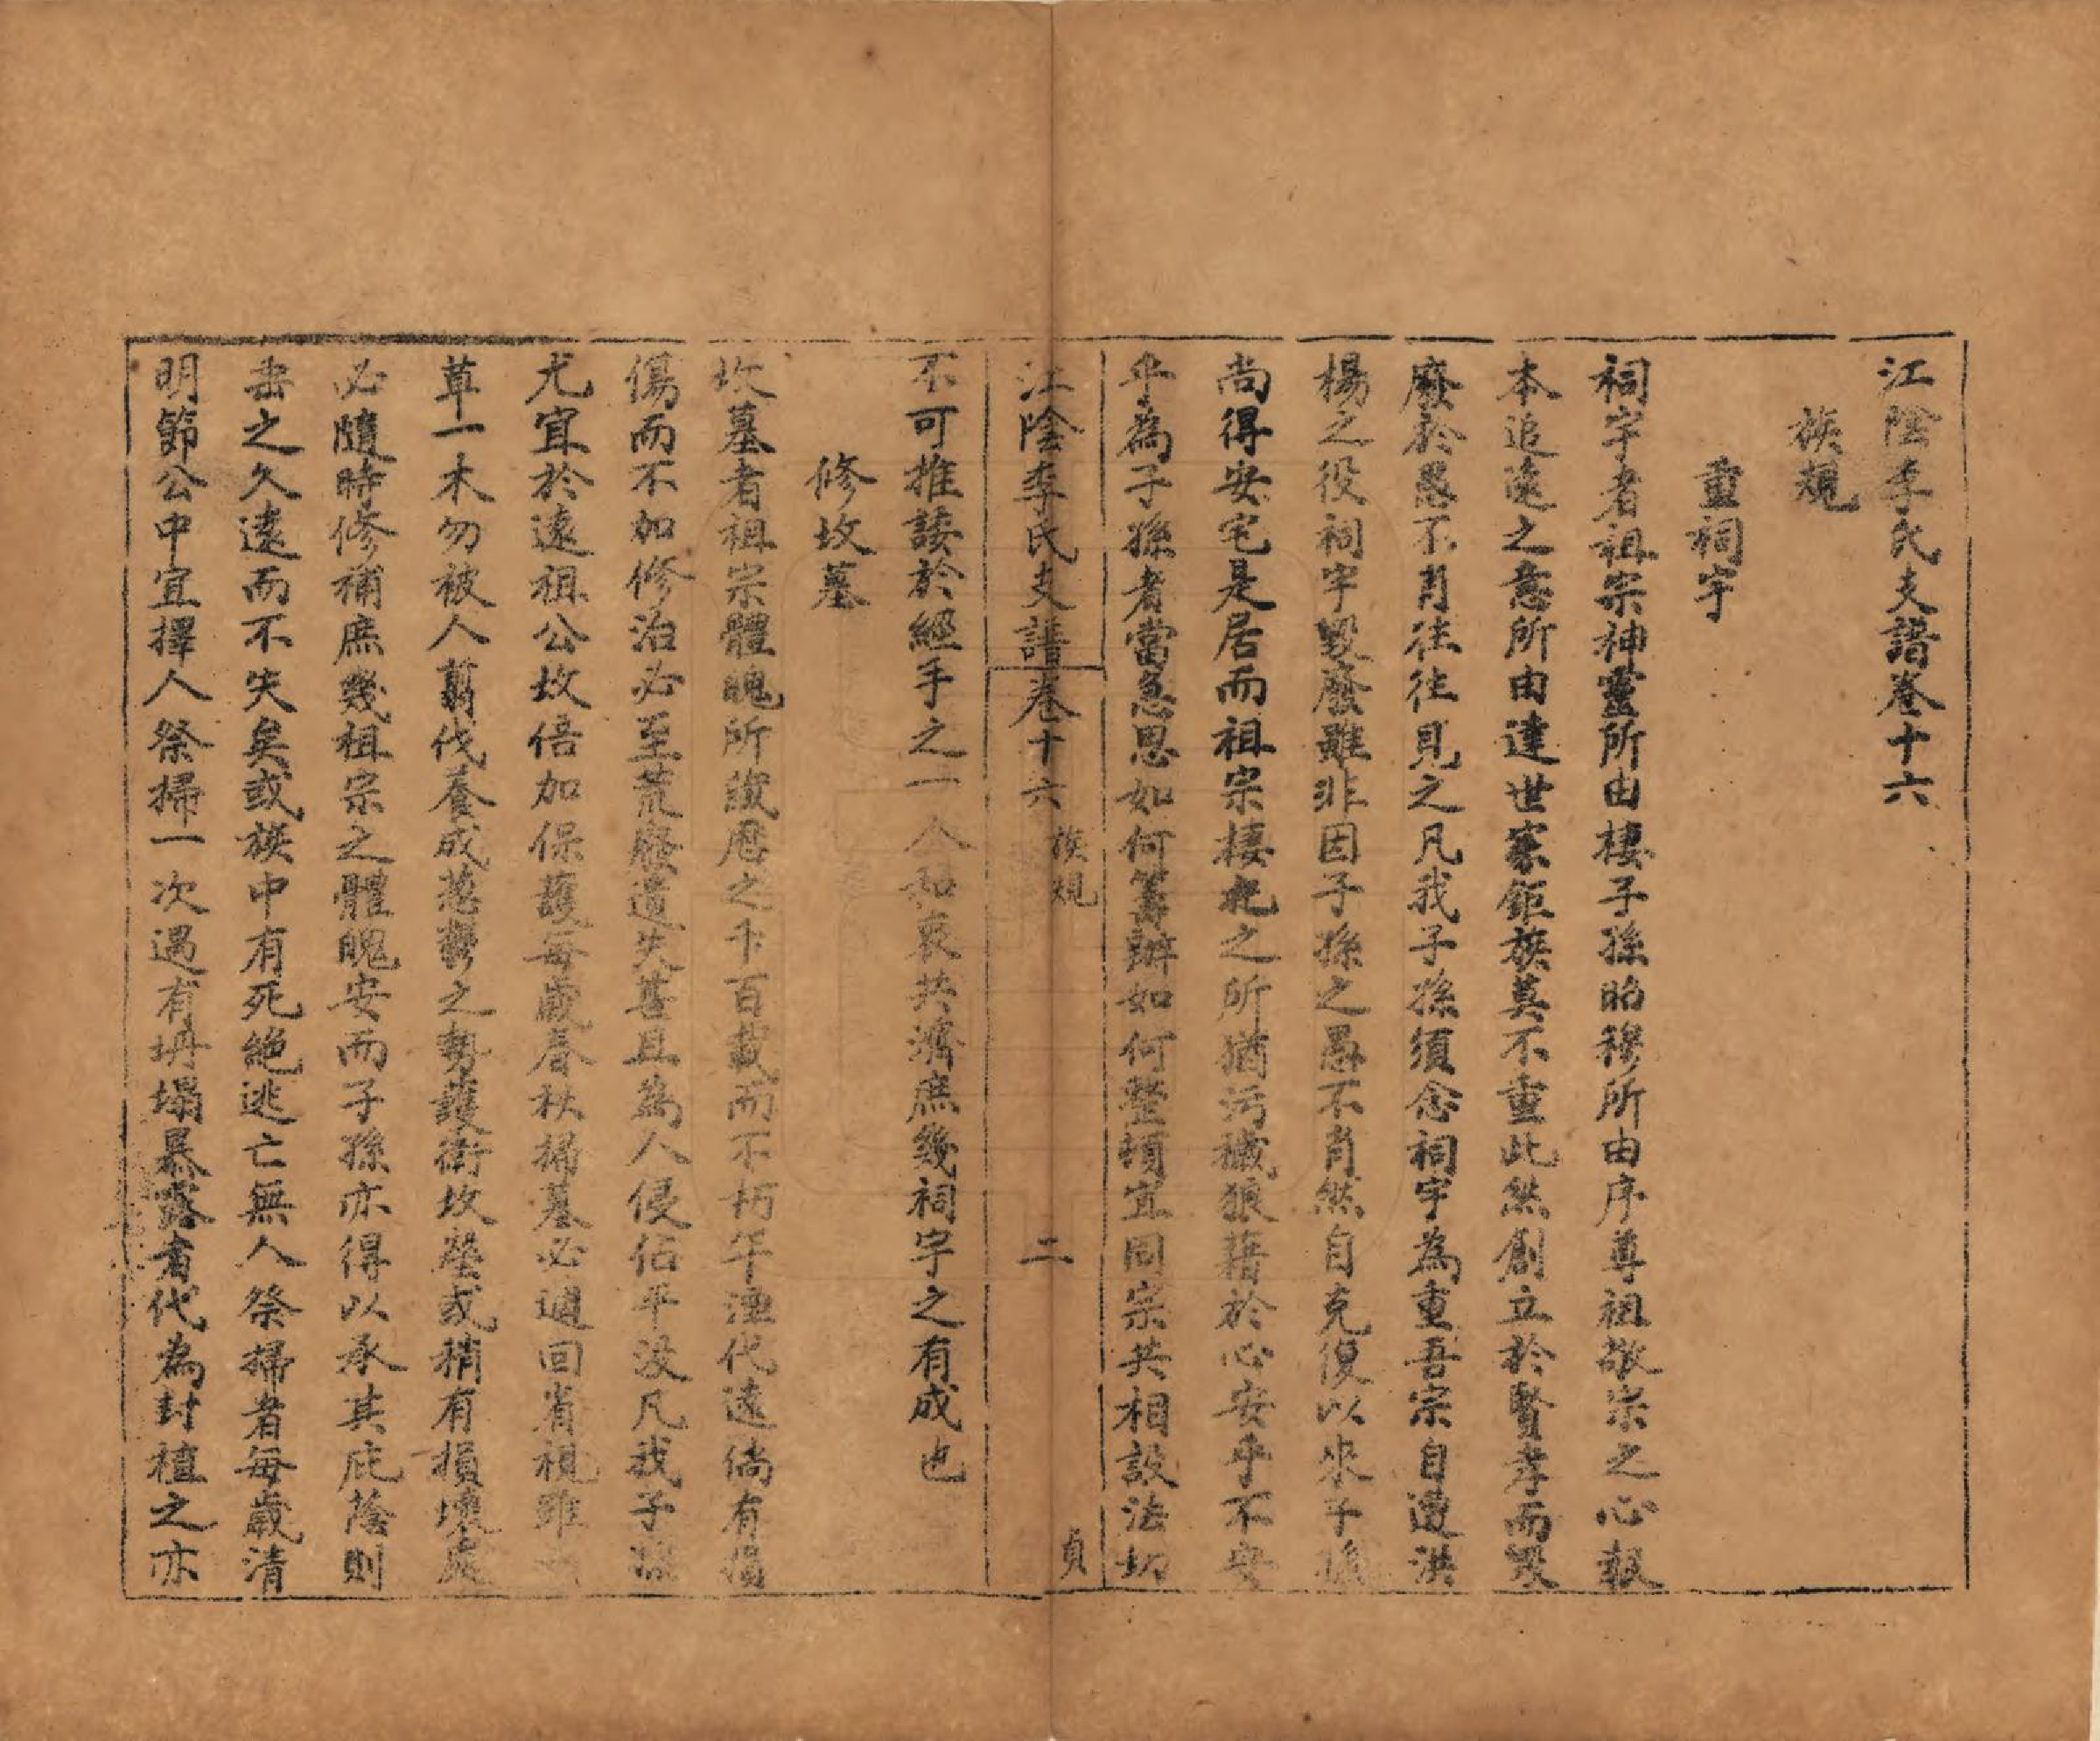 江陰李氏支譜卷十六
族規
重祠宇
祠宇者祖宗神靈所由棲子孫昭穆所由序尊祖敬宗之心報
本追遠之意所由達世家鉅族莫不重此然創立於賢孝而毀
廢於愚不肖往往見之凡我子孫須念祠宇為重吾宗自遭洪
楊之役祠宇毀廢雖非因子孫之愚不肖然自克復以來子孫
尚得安宅是居而祖宗棲死之所猶污穢狼藉於心安乎不安
乎為子孫者當急思如何籌辦如何整頓宜同宗共相設法切
江陰李氏支譜卷十六 族規 二 貞
不可推諉於經手之一人和衷共濟庶幾祠宇之有成也
修坟墓
坟墓者祖宗體魄所藏歷之千百載而不朽年湮代遠倘有損
傷而不加修治必至荒廢遺失甚且為人侵佔平没凡我子孫
尤宜於遠祖公坟倍加保護每歲春秋掃墓必週回省視雖
草一木勿被人翦伐養成葱鬱之勢護衛坟塋或稍有損壞處
必隨時修補庶幾祖宗之體魄安而子孫亦得以承其庇蔭則
垂之久遠而不失矣或族中有死絕逃亡無人祭掃者每歲清
明節公中宜擇人祭掃一次遇有坍塌暴露者代為封植之亦